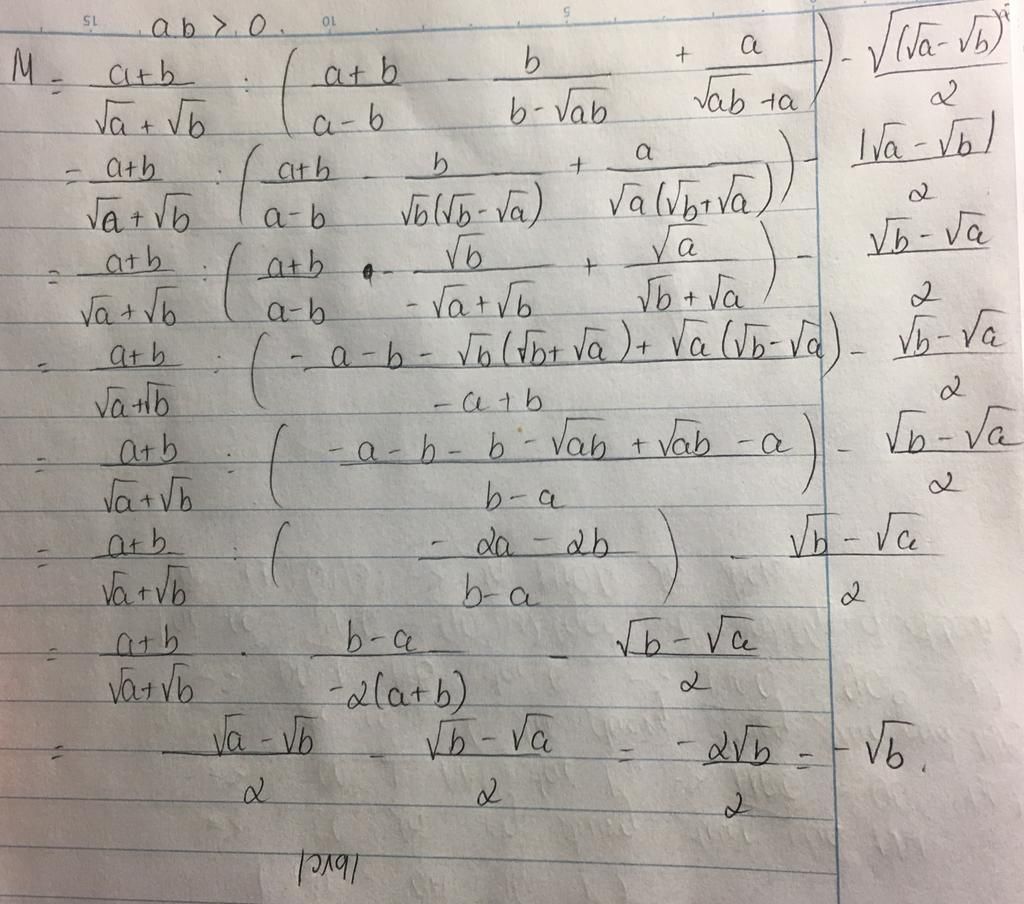 15 10 5
ab > 0.
M = (a+b)/(√a + √b) : ( (a+b)/(a-b) - b/(b-√ab) + a/(√ab +a) ) - √((√a-√b)²)/2
= (a+b)/(√a + √b) : ( (a+b)/(a-b) - b/(√b(√b-√a)) + a/(√a(√b+√a)) ) - |√a-√b|/2
= (a+b)/(√a + √b) : ( (a+b)/(a-b) - √b/(-√a+√b) + √a/(√b+√a) ) - (√b-√a)/2
= (a+b)/(√a+√b) : ( (-a-b-√b(√b+√a)+√a(√b-√a))/(-a+b) ) - (√b-√a)/2
= (a+b)/(√a+√b) : ( (-a-b-b-√ab+√ab-a)/(b-a) ) - (√b-√a)/2
= (a+b)/(√a+√b) : ( (-2a-2b)/(b-a) ) - (√b-√a)/2
= (a+b)/(√a+√b) . (b-a)/(-2(a+b)) - (√b-√a)/2
= (√a-√b)/2 - (√b-√a)/2 = (-2√b)/2 = -√b.